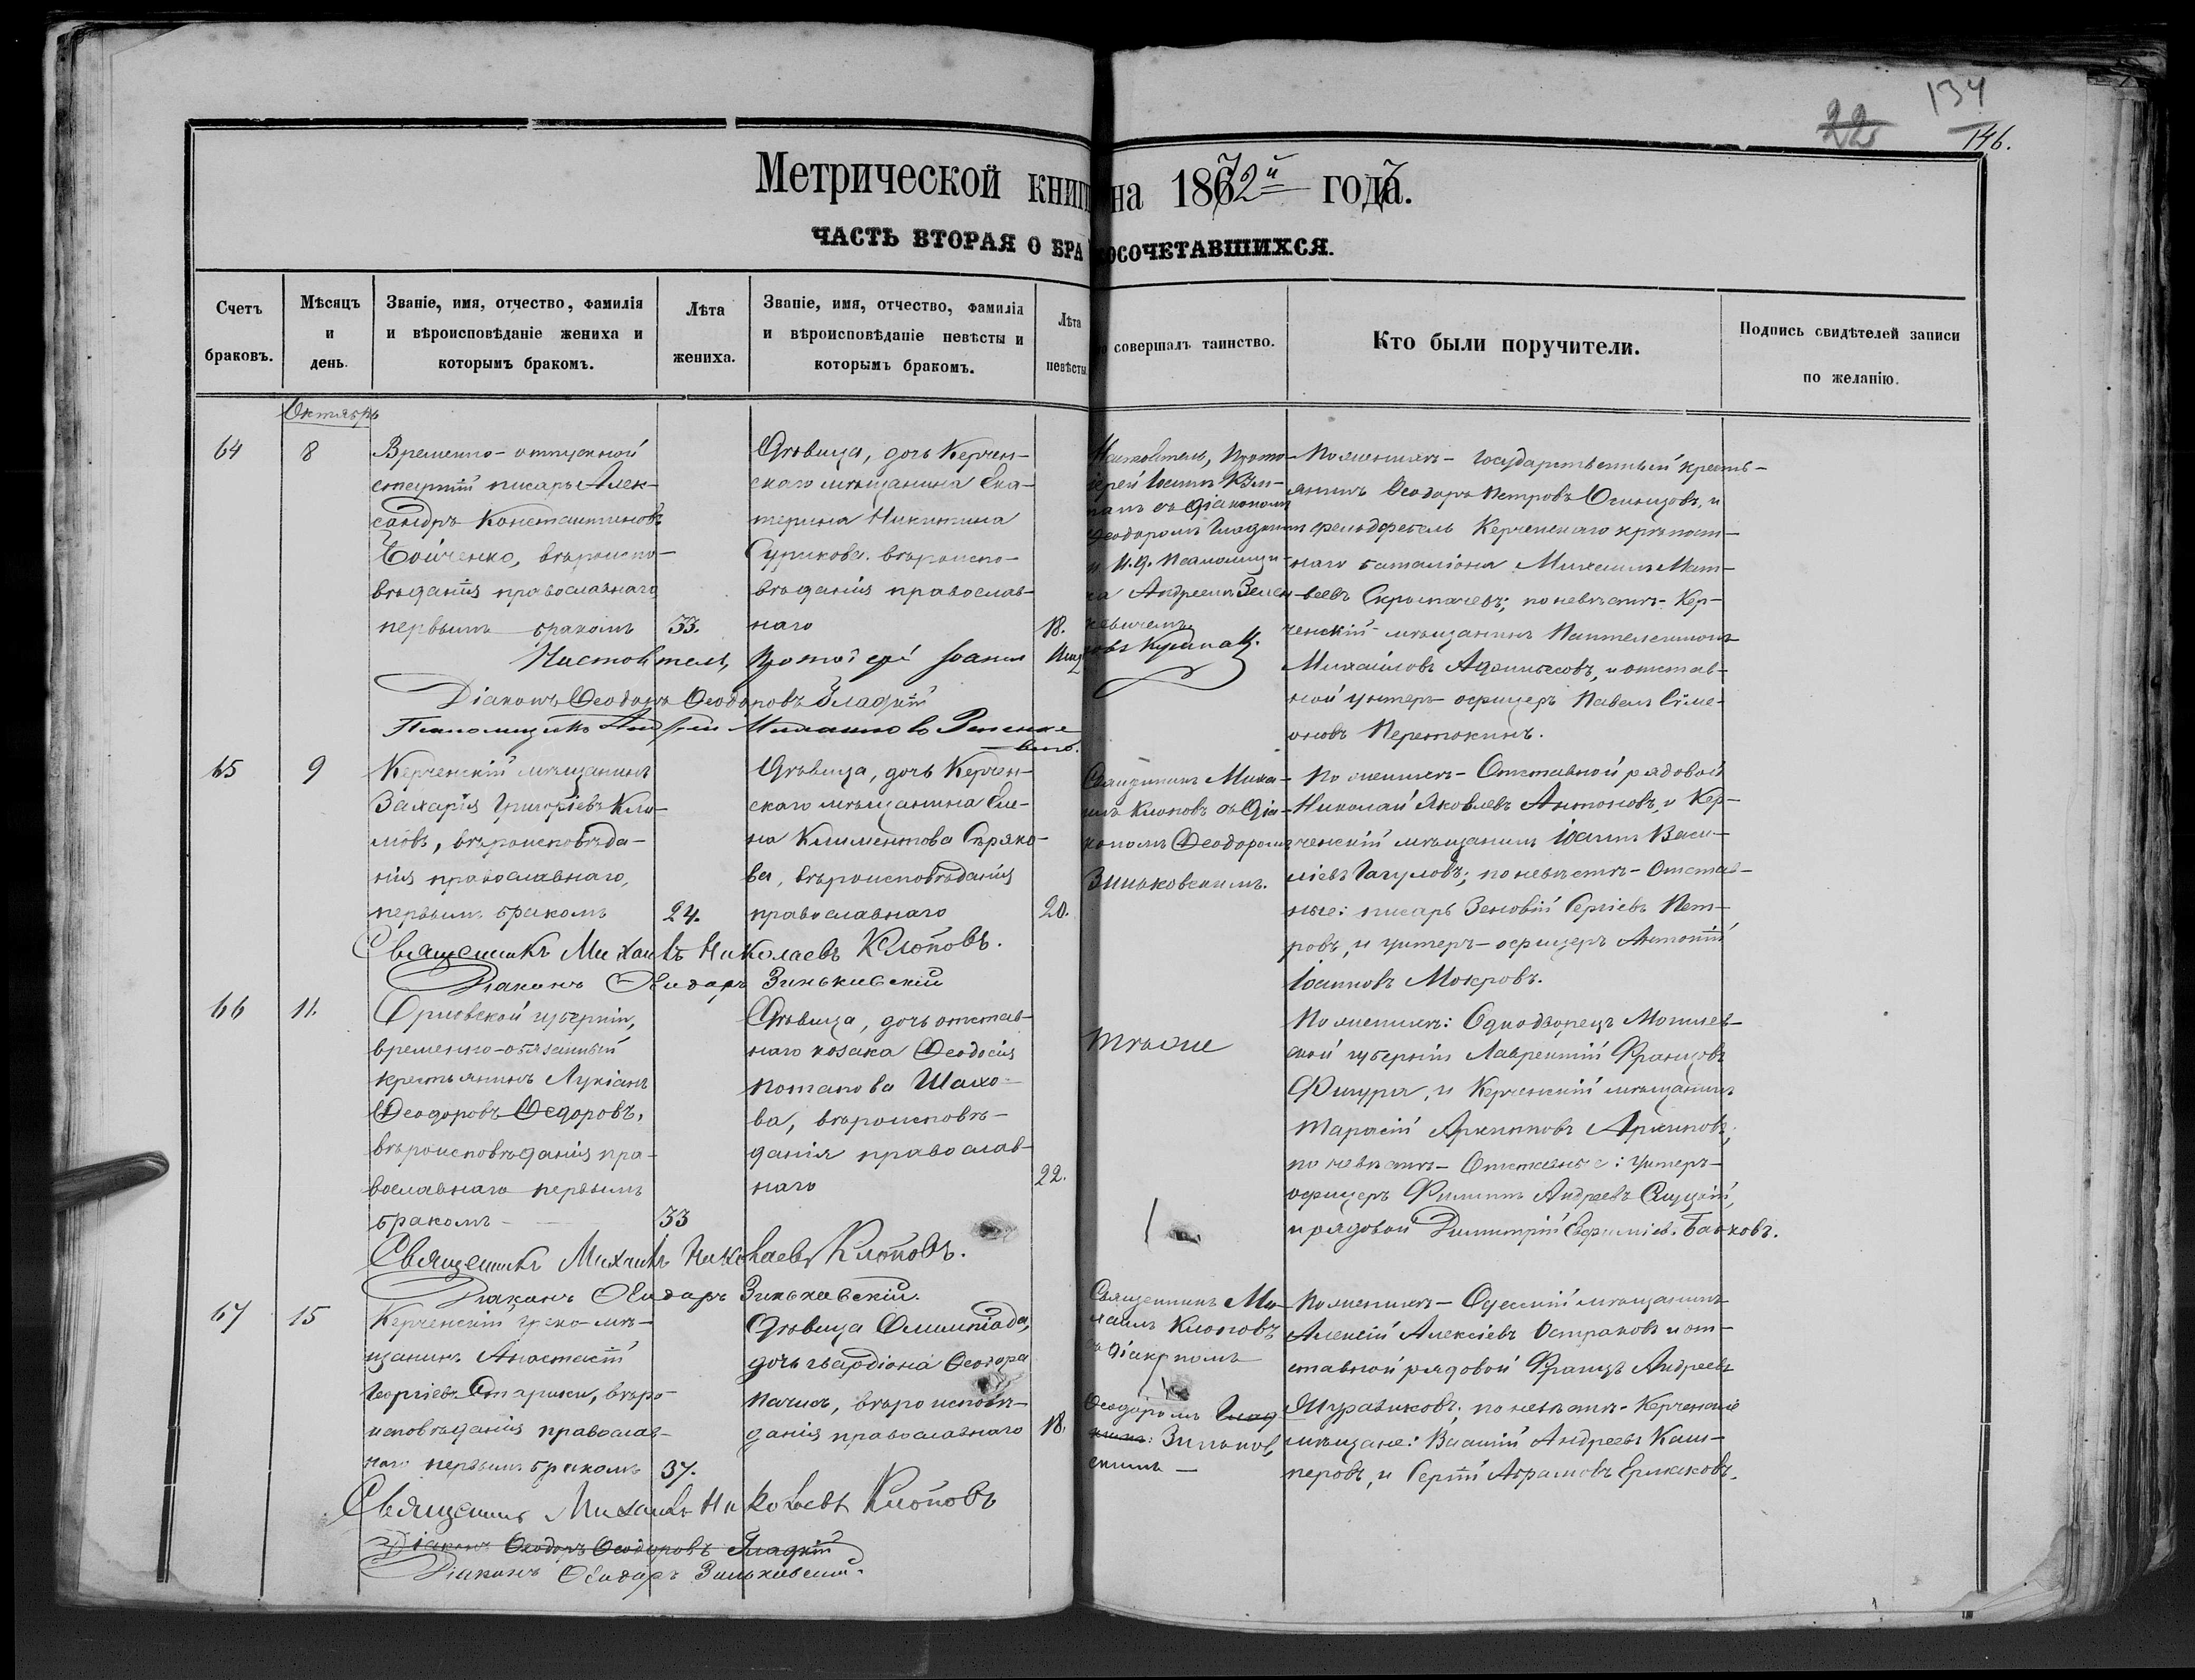 22
134
146.
Метрической книг на 1872й года.
ЧАСТЬ ВТОРАЯ О БРАКОСОЧЕТАВШИХСЯ.
Счетъ браковъ.
Мѣсяцъ и день.
Званіе, имя, отчество, фамилія
и вѣроисповѣданіе жениха и
которымъ бракомъ.
Лѣта жениха.
Званіе, имя, отчество, фамилія
и вѣроисповѣданіе невѣсты и
которымъ бракомъ.
Лѣта невѣсты
совершалъ таинство.
Кто были поручители.
Подпись свидѣтелей записи
по желанію.
Октябрь
64
8
Временно-отпускной
писарь Алек-
сандръ Константиновъ
Бойченко, вѣроиспо-
вѣданія православнаго
первымъ бракомъ
33.
Дѣвица, дочь Керчен-
скаго мѣщанина Ека-
терина Никитина
Сурикова. вѣроиспо-
вѣданія православ-
наго
18.
Настоятель, Прото-
іерей Іоаннъ
съ Діакономъ
Ѳеодоромъ Гладкимъ
и И. д. Псаломщи-
ка Андреемъ Зелен-
кевичемъ.
По женихѣ - государственный кресть-
янинъ Ѳеодоръ Петровъ Осинцовъ, и
фельдфебель Керченскаго крѣпост-
наго баталіона Михаилъ Мат-
вѣевъ по невѣстѣ - Кер-
ченскій мѣщанинъ Пантелеимонъ
Михаиловъ и отстав-
ной унтеръ-офицеръ Павелъ Симе-
оновъ Перетокинъ.
Настоятель, Протоіерей Іоаннъ
Діаконъ Ѳеодоръ Ѳеодоровъ Гладкій
Псаломщикъ Андрей Михаиловъ
65
9
Керченскій мѣщанинъ
Захарія Григоріевъ Кли-
мовъ, вѣроисповѣда-
нія православнаго,
первымъ бракомъ
24.
Дѣвица, дочь Керчен-
скаго мѣщанина Еле-
на Климентова Сѣряко-
ва, вѣроисповѣданія
православнаго
20.
Священникъ Миха-
илъ Клоповъ съ Діа-
кономъ Ѳеодоромъ
Зиньковскимъ.
По женихѣ - Отставной рядовой
Николай Яковлевъ Антоновъ, и Кер-
ченскій мѣщанинъ Іоаннъ Васи-
ліевъ по невѣстѣ - Отстав-
ные: писарь Зеновій Сергіевъ Пет-
ровъ, и унтеръ-офицеръ Антоній
Іоанновъ Мокровъ.
Священникъ Михаилъ Николаевъ Клоповъ.
Діаконъ Ѳеодоръ Зиньковскій
66
11.
Орловской губерніи,
временно-обязанный
крестьянинъ Лукіанъ
Ѳеодоровъ Ѳедоровъ,
вѣроисповѣданія пра-
вославнаго первымъ
бракомъ
33
Дѣвица, дочь отстав-
наго козака Ѳеодосія
Потапова Шахо-
ва, вѣроисповѣ-
данія православ-
наго
22.
тѣже
По женихѣ: Однодворецъ Могилев-
ской губерніи Лаврентій Францовъ
Фигура, и Керченскій мѣщанинъ
Тарасій Архиповъ Архиповъ;
по невѣстѣ - Отставные: унтеръ-
офицеръ Филиппъ Андреевъ
и рядовой Димитрій Евфиміев. Баковъ.
Священникъ Михаилъ Николаевъ Клоповъ.
Діаконъ Ѳеодоръ Зиньковскій.
67
15
Керченскій греко-мѣ-
щанинъ Анастасій
Георгіевъ вѣро-
исповѣданія православ-
наго первымъ бракомъ
37.
Дѣвица Олимпіада,
дочь Ѳеодора
вѣроисповѣ-
данія православнаго
18.
Священникъ Ми-
хаилъ Клоповъ
съ Діакономъ
Ѳеодоромъ Глад
кимъ: Зиньков
скимъ —
По женихѣ - Одесскій мѣщанинъ
Алексій Алексіевъ Остраковъ и от-
ставной рядовой Францъ Андреевъ
Журавиковъ; по невѣстѣ - Керченскіе
мѣщане: Василій Андреевъ Каш-
перовъ, и Сергій Абрамовъ Ермаковъ.
Священникъ Михаилъ Николаевъ Клоповъ
Діаконъ Ѳеодоръ Ѳеодоровъ Гладкій
Діаконъ Ѳеодоръ Зиньковскій.